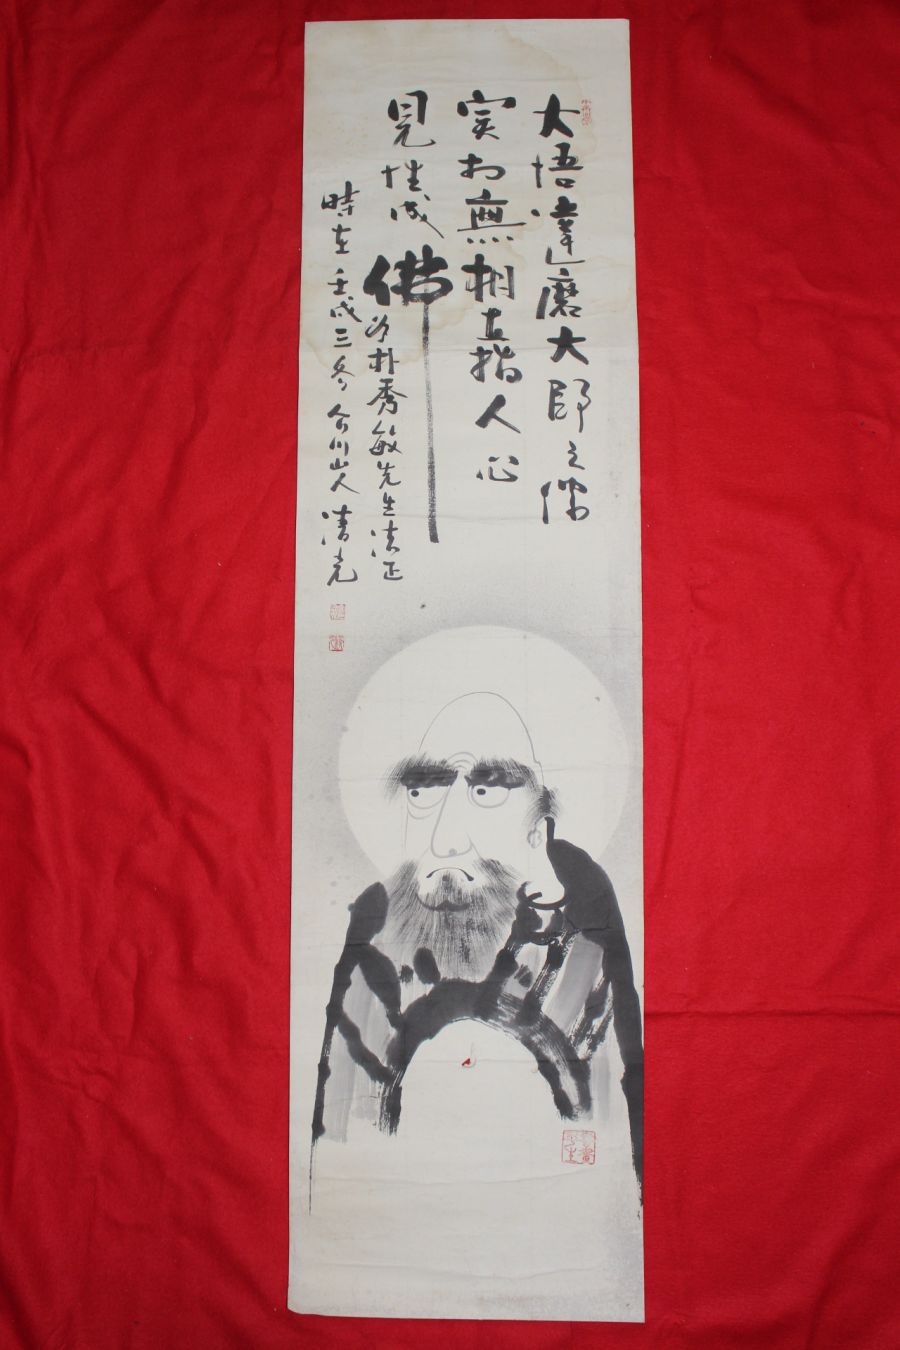 大悟達磨大師之像
实相無相直指人心
見性成佛
為朴秀敏先生法正
時在壬戌三冬 山人清光